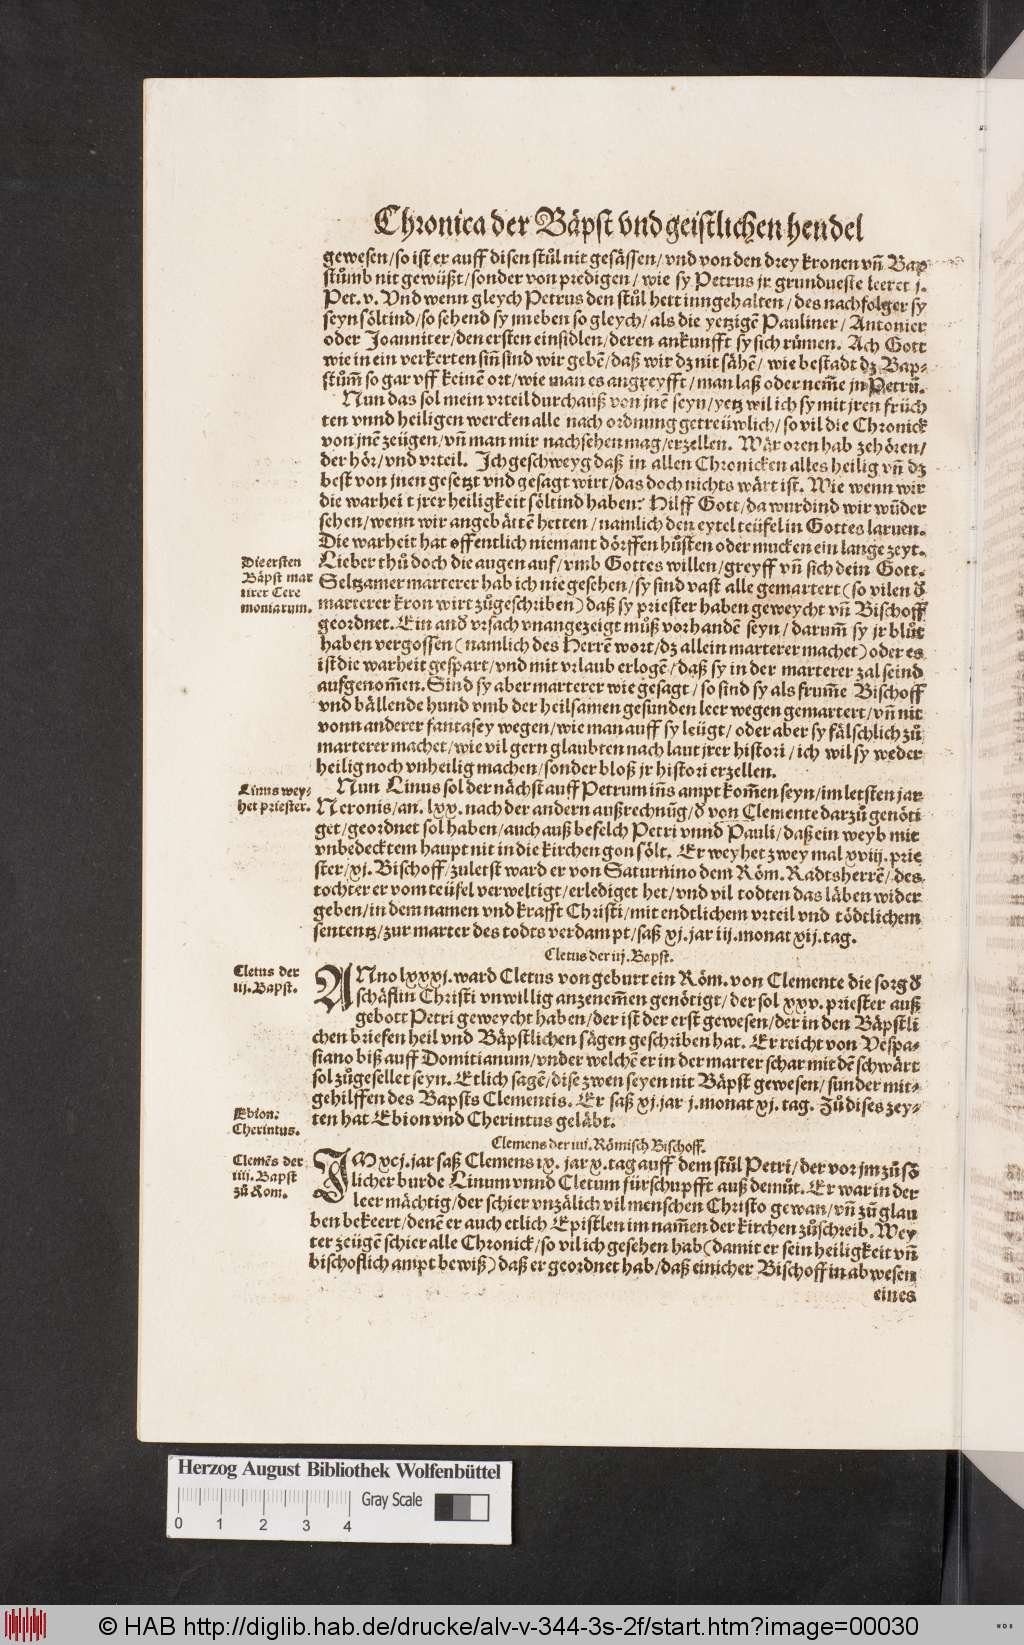 Chronica der Bäpst vnd geistlichen hendel
gewesen/so ist er auff disen stůl nit gesässen/ vnd von den drey kronen vñ Bap
stůmb nit gewüßt/sonder von predigen/ wie sy Petrus jr grundueste leeret j.
Pet. v. Vnd wenn gleych Petrus den stůl hett inngehalten/ des nachfolger sy
seyn söltind/so sehend sy jm eben so gleych/ als die yetzigẽ Pauliner/ Antonier
oder Joanniter/den ersten einsidlen/deren ankunfft sy sich růmen. Ach Gott
wie in ein verkerten siñ sind wir gebẽ/daß wir dz nit sähẽ/ wie bestadt dz Bap-
stům̃ so gar vff keinẽ ort/wie man es angreyfft/man laß oder nem̃e jn Petrũ.
Nun das sol mein vrteil durchauß von jnẽ seyn/yetz wil ich sy mit jren früch
ten vnnd heiligen wercken alle nach ordnung getreüwlich/so vil die Chronick
von jnẽ zeügen/vñ man mir nachsehen mag/erzellen. Wär oren hab zehören/
der hör/vnd vrteil. Ich geschweyg daß in allen Chronicken alles heilig vñ dz
best von jnen gesetzt vnd gesagt wirt/das doch nichts wärt ist. Wie wenn wir
die warheit jrer heiligkeit söltind haben: Hilff Gott/da wurdind wir wũder
sehen/wenn wir angebättẽ hetten/namlich den eytel teüfel in Gottes laruen.
Die warheit hat offentlich niemant dörffen hůsten oder mucken ein lange zeyt.
Die ersten
Bäpst mar
tirer Cere
moniarum.
Lieber thů doch die augen auf/vmb Gottes willen/greyff vñ sich dein Gott.
Seltzamer marterer hab ich nie gesehen/sy sind vast alle gemartert (so vilen d̕
marterer kron wirt zůgeschriben) daß sy priester haben geweycht vñ Bischoff
geordnet. Ein and̕ vrsach vnangezeigt můß vorhandẽ seyn/darum̃ sy jr blůt
haben vergossen (namlich des Herrẽ wort/dz allein marterer machet) oder es
ist die warheit gespart/vnd mit vrlaub erlogẽ/daß sy in der marterer zal seind
aufgenom̃en. Sind sy aber marterer wie gesagt/so sind sy als frum̃e Bischoff
vnd bällende hund vmb der heilsamen gesunden leer wegen gemartert/vñ nit
vonn anderer fantasey wegen/wie man auff sy leügt/oder aber sy fälschlich zů
marterer machet/wie vil gern glaubten nach laut jrer histori/ich wil sy weder
heilig noch vnheilig machen/sonder bloß jr histori erzellen.
Linus wey-
het priester.
Nun Linus sol der nächst auff Petrum iñs ampt kom̃en seyn/im letsten jar
Neronis/an. lxx. nach der andern außrechnũg/d̕ von Clemente darzů genöti
get/geordnet sol haben/auch auß befelch Petri vnnd Pauli/daß ein weyb mit
vnbedecktem haupt nit in die kirchen gon sölt. Er weyhet zwey mal xviij. prie
ster/xj. Bischoff/zuletst ward er von Saturnino dem Röm. Radtsherrẽ/des
tochter er vom teüfel verweltigt/erlediget het/vnd vil todten das läben wider
geben/in dem namen vnd krafft Christi/mit endtlichem vrteil vnd tödtlichem
sententz/zur marter des todts verdampt/saß xj. jar iij. monat xij. tag.
Cletus der iij. Bapst.
Cletus der
iij. Bapst.
ANno lxxxj. ward Cletus von geburt ein Röm. von Clemente die sorg d̕
schäflin Christi vnwillig anzenem̃en genötigt/der sol xxv. priester auß
gebott Petri geweycht haben/der ist der erst gewesen/der in den Bäpstli
chen briefen heil vnd Bäpstlichen sägen geschriben hat. Er reicht von Vespa-
siano biß auff Domitianum/vnder welchẽ er in der marter schar mit dẽ schwärt
sol zůgesellet seyn. Etlich sagẽ/dise zwen seyen nit Bäpst gewesen/sunder mit-
gehilffen des Bapsts Clementis. Er saß xj. jar j. monat xj. tag. Zů dises zey-
Ebion:
Cherintus.
ten hat Ebion vnd Cherintus geläbt.
Clemens der iiij. Römisch Bischoff.
Clemẽs der
iiij. Bapst
zů Rom.
IM xcj. jar saß Clemens ix. jar x. tag auff dem stůl Petri/der vor jm zů sõ
licher burde Linum vnnd Cletum fürschupfft auß demůt. Er war in der
leer mächtig/der schier vnzälich vil menschen Christo gewan/vñ zů glau
ben bekeert/denẽ er auch etlich Epistlen im nam̃en der kirchen zůschreib. Wey
ter zeügẽ schier alle Chronick/so vil ich gesehen hab (damit er sein heiligkeit vñ
bischoflich ampt bewiß) daß er geordnet hab/daß einicher Bischoff in abwesen
eines
Herzog August Bibliothek Wolfenbüttel
Gray Scale
0 1 2 3 4
© HAB http://diglib.hab.de/drucke/alv-v-344-3s-2f/start.htm?image=00030